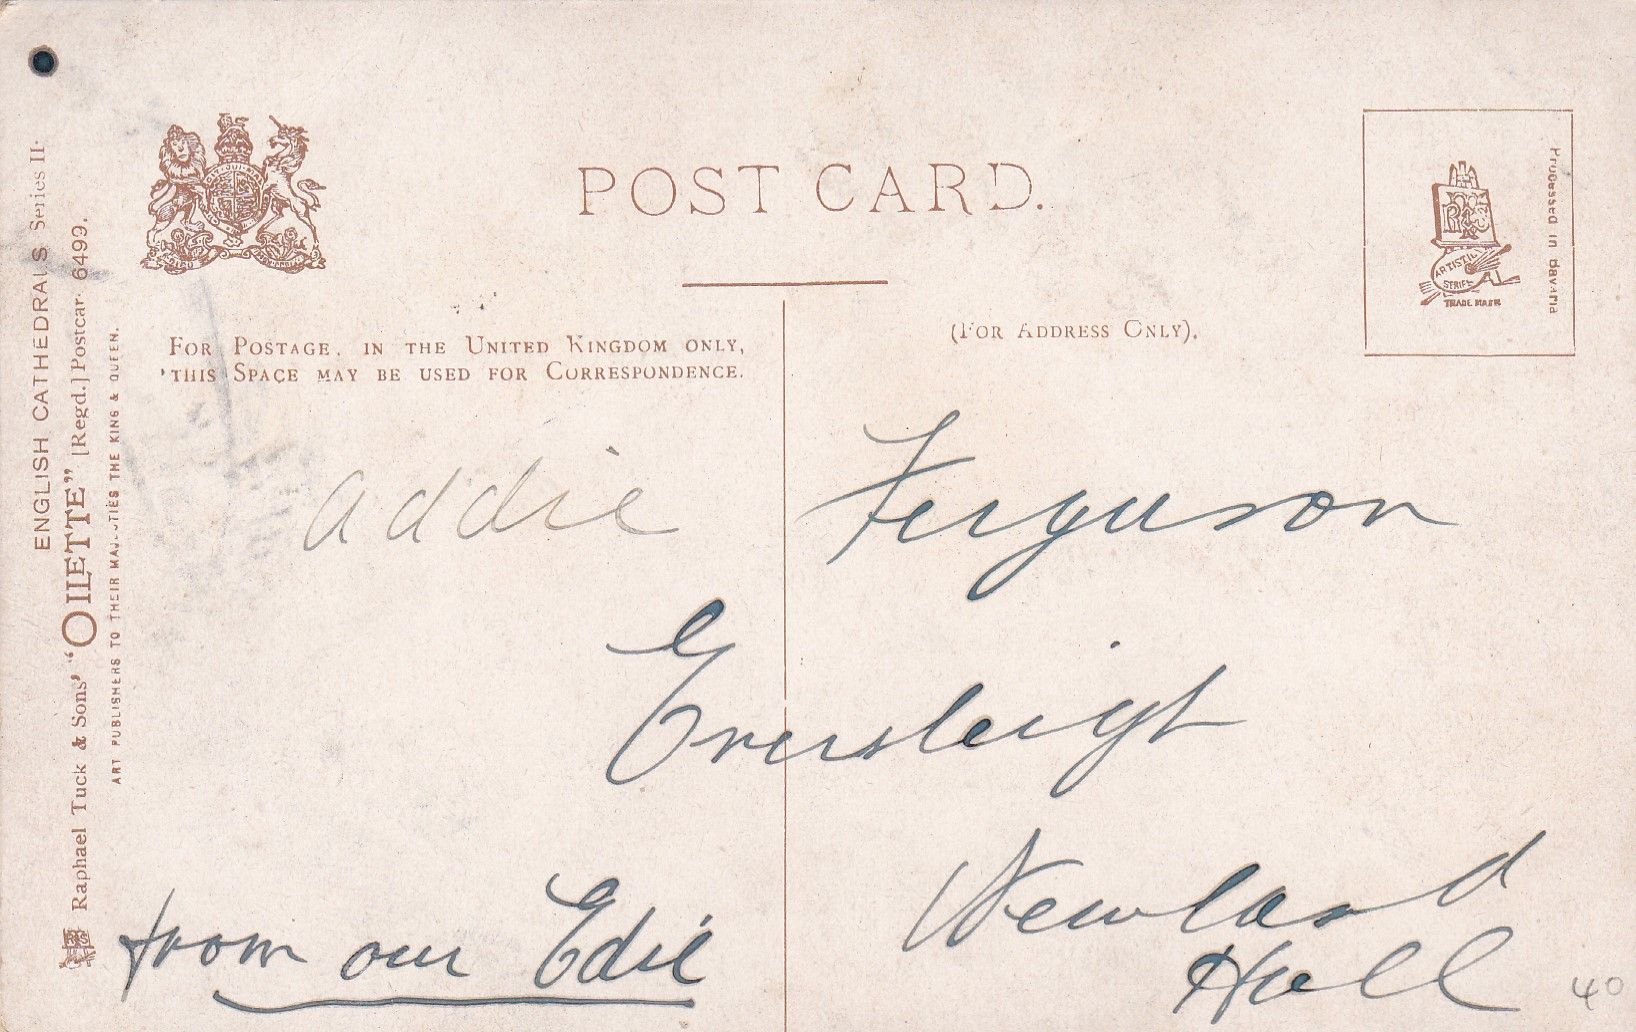 POST CARD.
FOR POSTAGE, IN THE UNITED KINGDOM ONLY,
THIS SPACE MAY BE USED FOR CORRESPONDENCE.
(FOR ADDRESS ONLY).
Processed in Bavaria
ARTISTIC
SERIES
TRADE MARK
ENGLISH CATHEDRALS Series II.
Raphael Tuck & Sons' "OILETTE" [Regd.] Postcard 6499.
ART PUBLISHERS TO THEIR MAJESTIES THE KING & QUEEN.
Addie Ferguson
Eversleigh
Newland
Hull
from our Edie
40